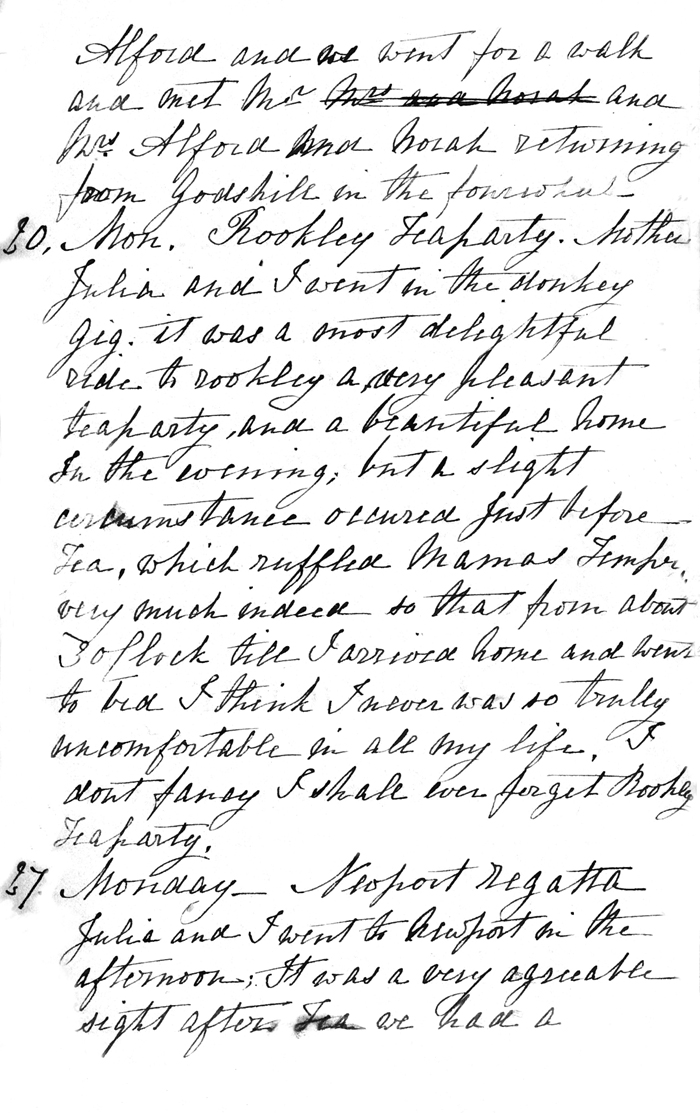 Alford and we went for a walk
and met Mr Mrs and Norah and
Mrs Alford and Norah returning
from Godshill in the fourwheel-
20. Mon. Rookley Teaparty. Mother
Julia and I went in the donkey
gig. it was a most delightful
ride to rookley a very pleasant
teaparty, and a beautiful home
In the evening; but a slight
circumstance occured Just before
Tea, which ruffled Mamas Temper.
very much indeed so that from about
3 oClock till I arrived home and went
to bed I think I never was so trully
uncomfortable in all my life. I
dont fancy I shall ever forget Rookley
Teaparty.
27. Monday - Newport regatta
Julia and I went to Newport in the
afternoon; It was a very agreeable
sight after Tea we had a